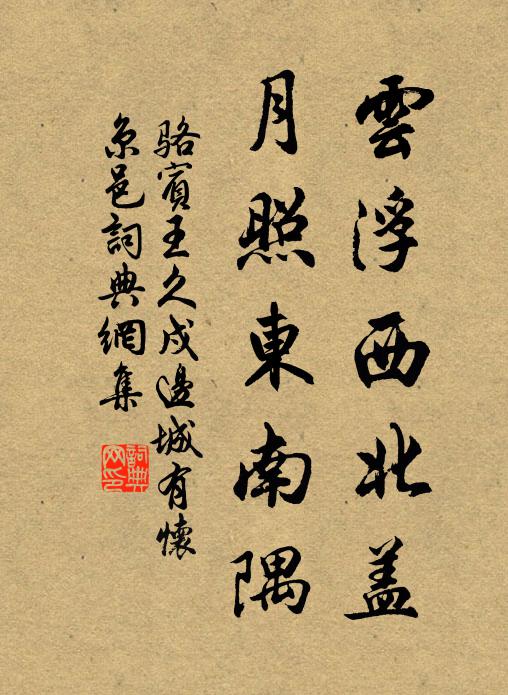 雲浮西北盖
月照東南隅
骆賓王久戍邊城有懷
京邑詞典網集
詞典
网印